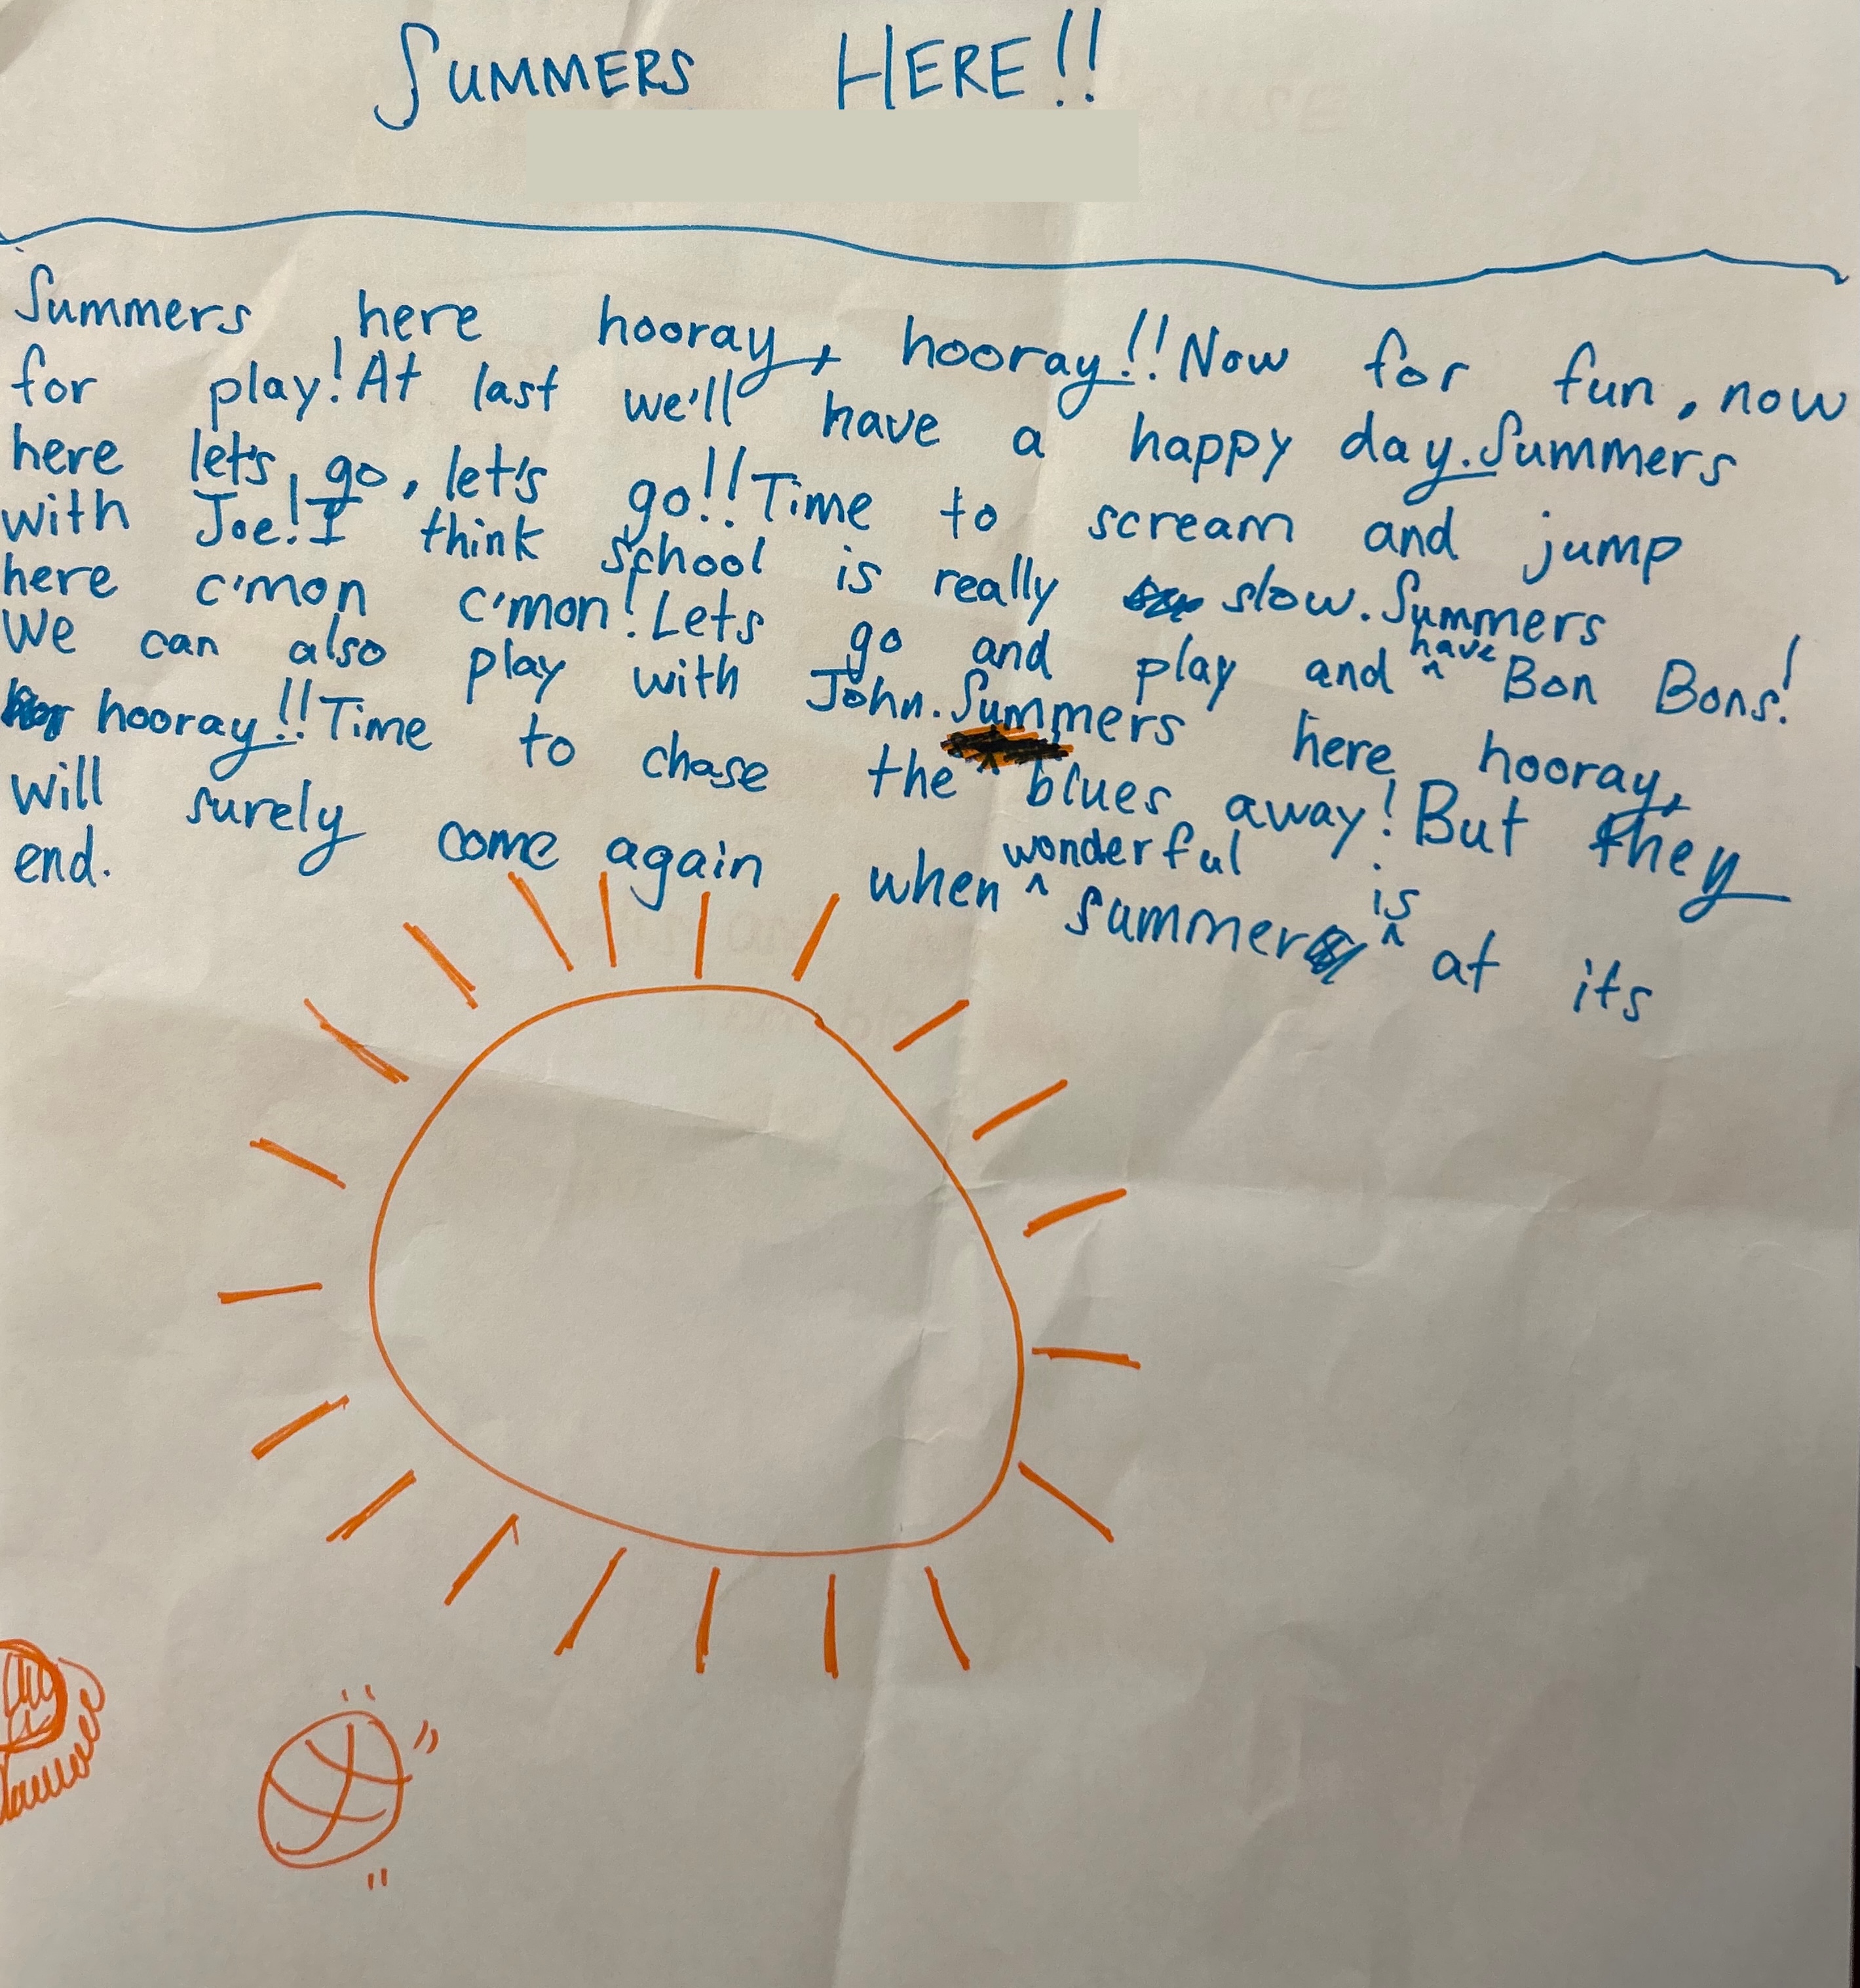 SUMMERS HERE!!
Summers here hooray, hooray!! Now for fun, now
for play! At last we'll have a happy day. Summers
here let's go, let's go!! Time to scream and jump
with Joe! I think school is really slow. Summers
here c'mon c'mon! Lets go and play and have Bon Bons!
We can also play with John. Summers here hooray,
hooray!! Time to chase the blues away! But they
will surely come again when wonderful summer is at its
end.